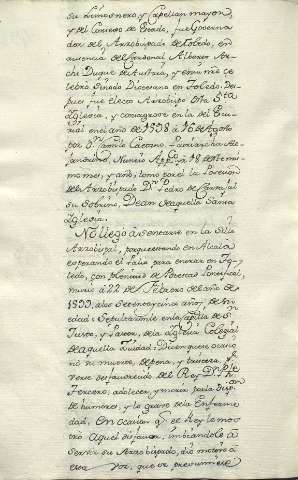 su Limosnero, y Capellan mayor,
y del Consejo de Estado, fue Governa
dor del Arzobispado de Toledo, en
ausencia del Cardenal Alberto Ar-
chi Duque de Austria, y en su nre ce
lebró Sinodo Diocesano en Toledo. Des-
pues fue electo Arzobispo dha Sta.
Iglesia, y consagrose en la del Escu-
rial en el año de 1598 à 16 de Agosto
por Dn. Camilo Caetano, Patriarcha Ale-
xandrino, Nuncio Appco. à 18 de el mis-
mo mes, y año, tomo por el la Posesion
del Arzobispado Dn. Pedro de Carvajal
su Sobrino, Dean de aquella Santa
Iglesia.
No llegó à sentarse en la Silla
Arzobispal, porque estando en Alcala
esperando el Palio para entrar en To-
ledo, con Plenitud de Potestad Pontifical,
murio à 22 de Febrero del año de
1599, a los Setenta y cinco años de su
edad: Sepultaronle en la Capilla de Sn.
Justo, y Pastor, de la Iglesia Colegial
de aquella Ciudad: Dicen que se ocasio
nó su muerte, de pena, y tristeza, pr.
verse desfavorecido del Rey Dn. Phe
Tercero, adolecer, y morir
de humores, y lo grave de la Enferme
dad. En ocasion qe. el Rey le mos
tró aquel disfavor, imbiandole à
servir su Arzobispado, dio motivo à
esta voz, que se presumiese